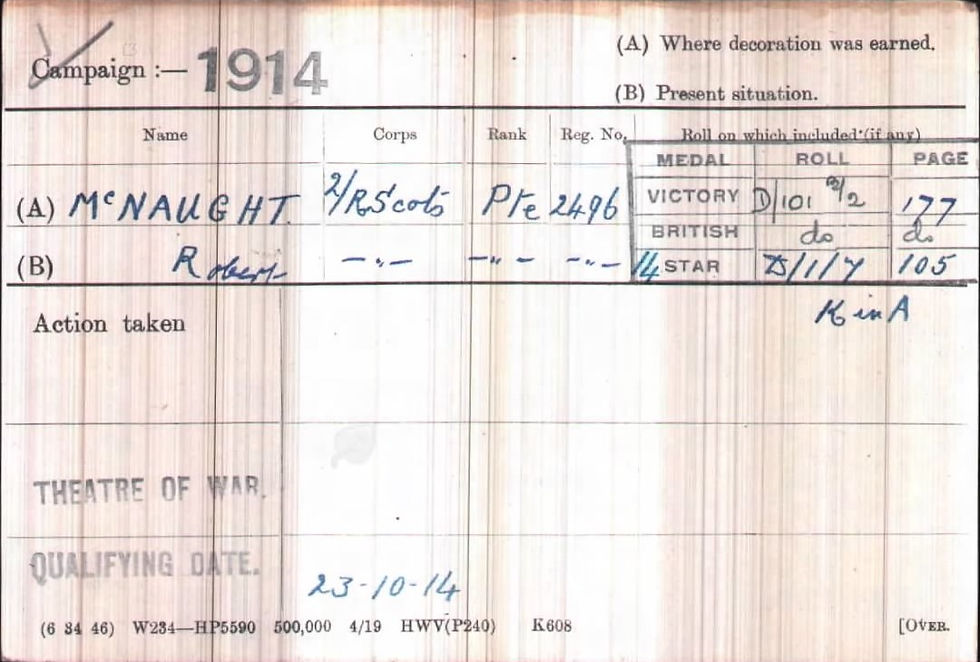 Campaign :— 1914
(A) Where decoration was earned.
(B) Present situation.
Name Corps Rank Reg. No. Roll on which included (if any)
MEDAL ROLL PAGE
(A) McNAUGHT. 2/R Scots Pte 2496 VICTORY D/101 B/2 177
BRITISH do do
(B) Robert —"— —"— —"— 14 STAR D/1/7 105
K in A
Action taken
THEATRE OF WAR.
QUALIFYING DATE. 23-10-14
(6 34 46) W234—HP5590 500,000 4/19 HWV(P240) K608 [OVER.